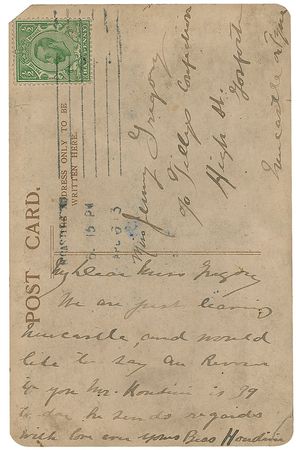 POST CARD.
ADDRESS ONLY TO BE
WRITTEN HERE.
15 PM
13
Miss Jenny Gregory
c/o Tilleys
High St. Gosforth
Newcastle
My Dear Miss Gregory
We are just leaving
Newcastle, and would
like to say Au Revoir
to you Mr. Houdini is 39
to-day he sends regards
with love ever yours Bess Houdini